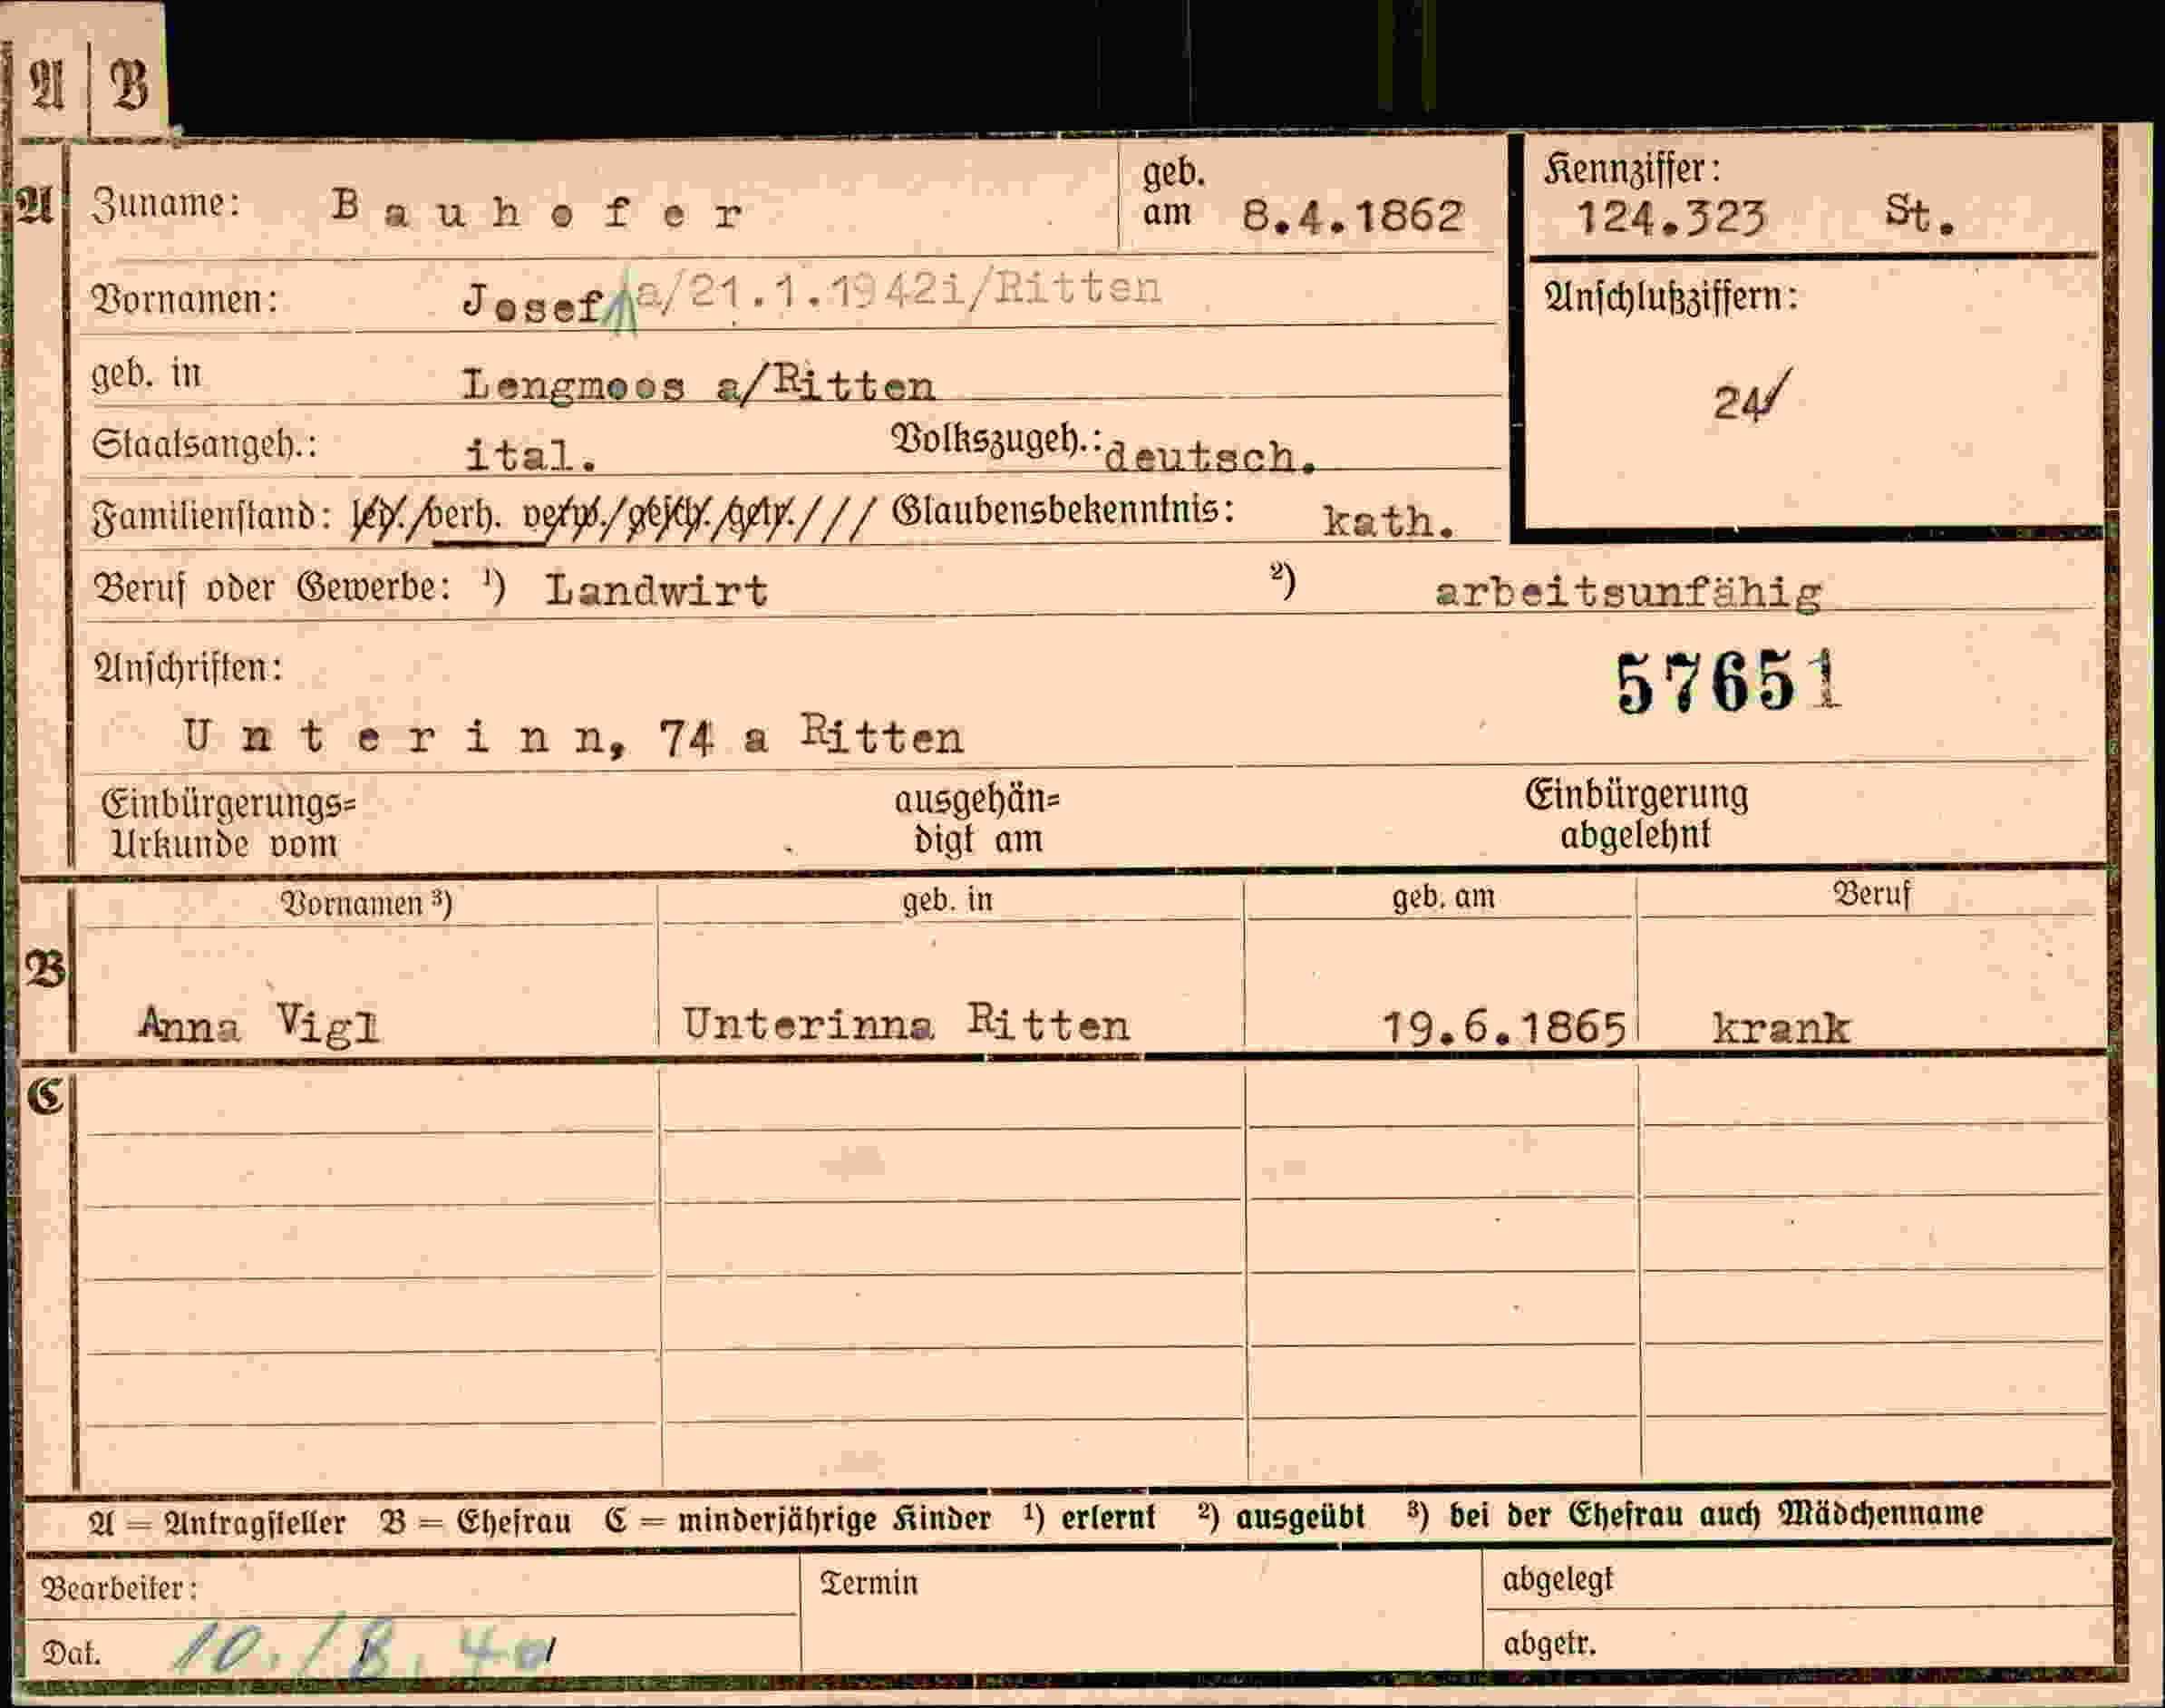 A B
A Zuname: Bauhofer geb. am 8.4.1862
Kennziffer: 124.323 St.
Vornamen: Josef a/21.1.1942i/Ritten
Anschlußziffern:
24/
geb. in Lengmoos a/Ritten
Staatsangeh.: ital. Volkszugeh.: deutsch.
Familienstand: led./verh. verw./gesch./getr./// Glaubensbekenntnis: kath.
Beruf oder Gewerbe: ¹) Landwirt ²) arbeitsunfähig
Anschriften:
57651
Unterinn, 74 a Ritten
Einbürgerungs= Urkunde vom
ausgehän= digt am
Einbürgerung abgelehnt
Vornamen ³) geb. in geb. am Beruf
B
Anna Vigl Unterinna Ritten 19.6.1865 krank
C
A = Antragsteller B = Ehefrau C = minderjährige Kinder ¹) erlernt ²) ausgeübt ³) bei der Ehefrau auch Mädchenname
Bearbeiter: Termin abgelegt
Dat. 10./8.40 abgetr.